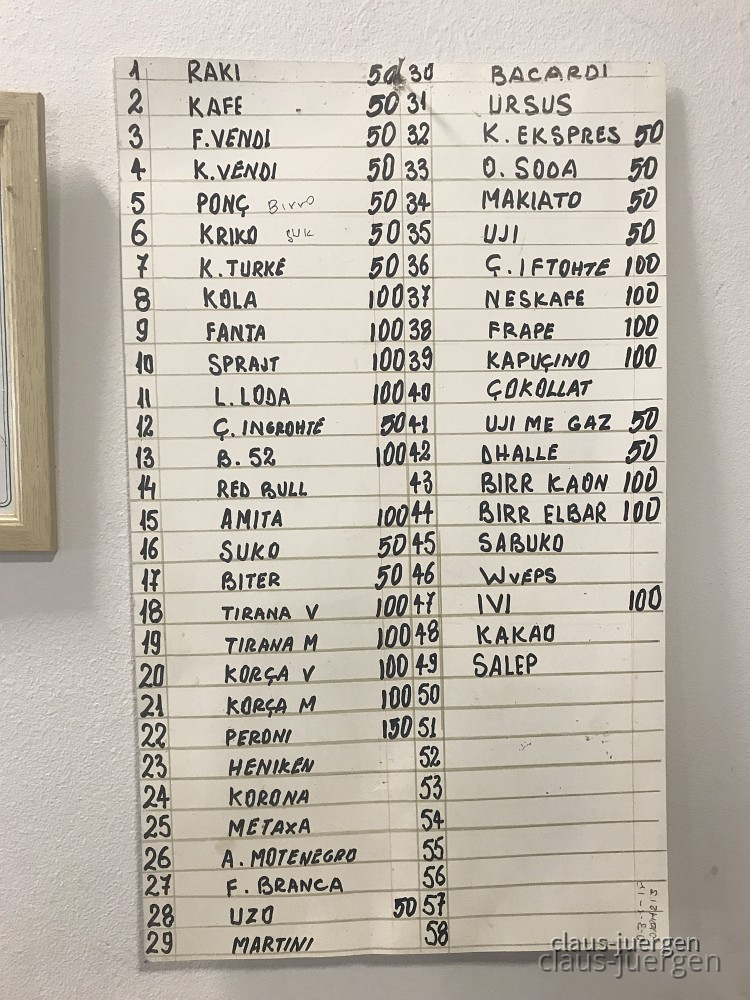 1 RAKI 50 30 BACARDI
2 KAFE 50 31 URSUS
3 F.VENDI 50 32 K. EKSPRES 50
4 K.VENDI 50 33 O. SODA 50
5 PONÇ Birro 50 34 MAKIATO 50
6 KRIKO SUK 50 35 UJI 50
7 K.TURKE 50 36 Ç. IFTOHTE 100
8 KOLA 100 37 NESKAFE 100
9 FANTA 100 38 FRAPE 100
10 SPRAJT 100 39 KAPUÇINO 100
11 L. LODA 100 40 ÇOKOLLAT
12 Ç. INGROHTE 50 41 UJI ME GAZ 50
13 B. 52 100 42 DHALLE 50
14 RED BULL 43 BIRR KAON 100
15 AMITA 100 44 BIRR ELBAR 100
16 SUKO 50 45 SABUKO
17 BITER 50 46 WVEPS
18 TIRANA V 100 47 IVI 100
19 TIRANA M 100 48 KAKAO
20 KORÇA V 100 49 SALEP
21 KORÇA M 100 50
22 PERONI 150 51
23 HENIKEN 52
24 KORONA 53
25 METAXA 54
26 A. MOTENEGRO 55
27 F. BRANCA 56
28 UZO 50 57
29 MARTINI 58
claus-juergen
claus-juergen